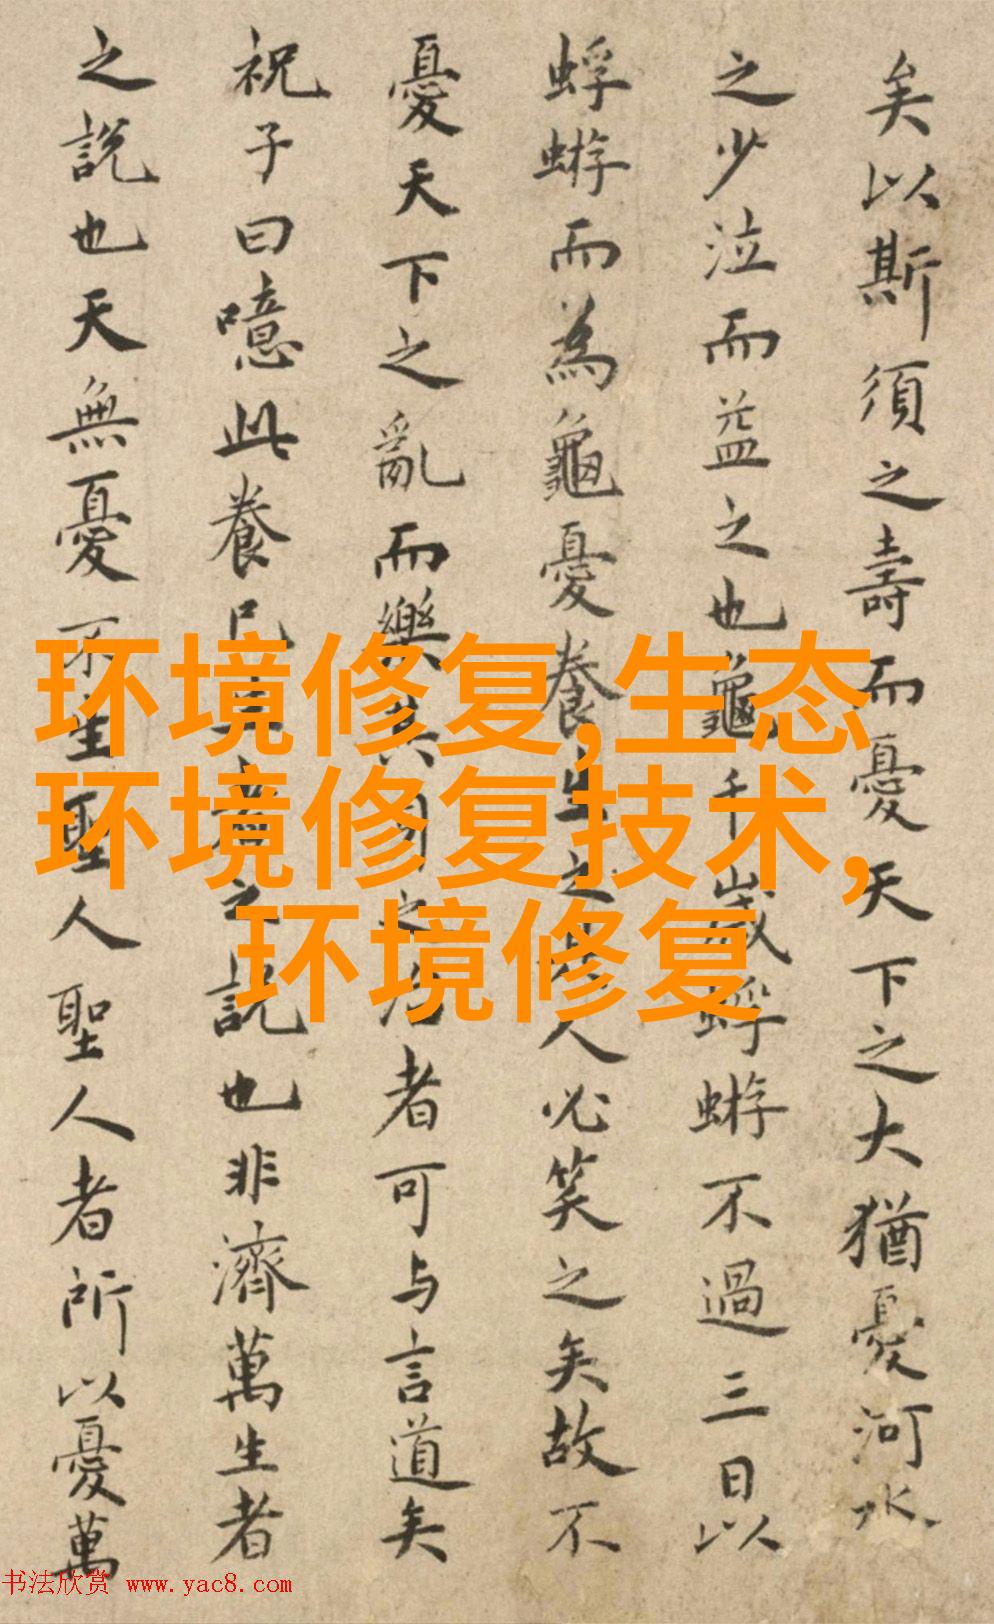 矣以斯須之壽而憂天下之大猶憂河水
之少泣而益之也龜千歲蜉蝣不過三日以
蜉蝣而為龜憂養生之具人必笑之矣故不
憂天下之亂而樂其身之治者可与言道矣
祝子曰噫此養己者之說也非濟萬生者
之說也天無憂不生聖人聖人者所以憂萬
环境修复,生态
环境修复技术，
环境修复
书法欣赏 www.yac8.com